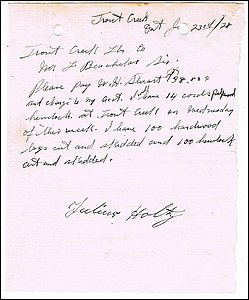 Trout Creek
Ont Ja 23rd/28
Trout Creek Lbr Co
Mr Beachelar Sir.
Please Pay W. H. Stuart $98.
and charge to my acct. I have 14 cords
hemlock at Trout Creek on Wednesday
of this week. I have 100 hardwood
logs cut and skidded and 100 hemlock
cut and skidded.
Julius Holtz